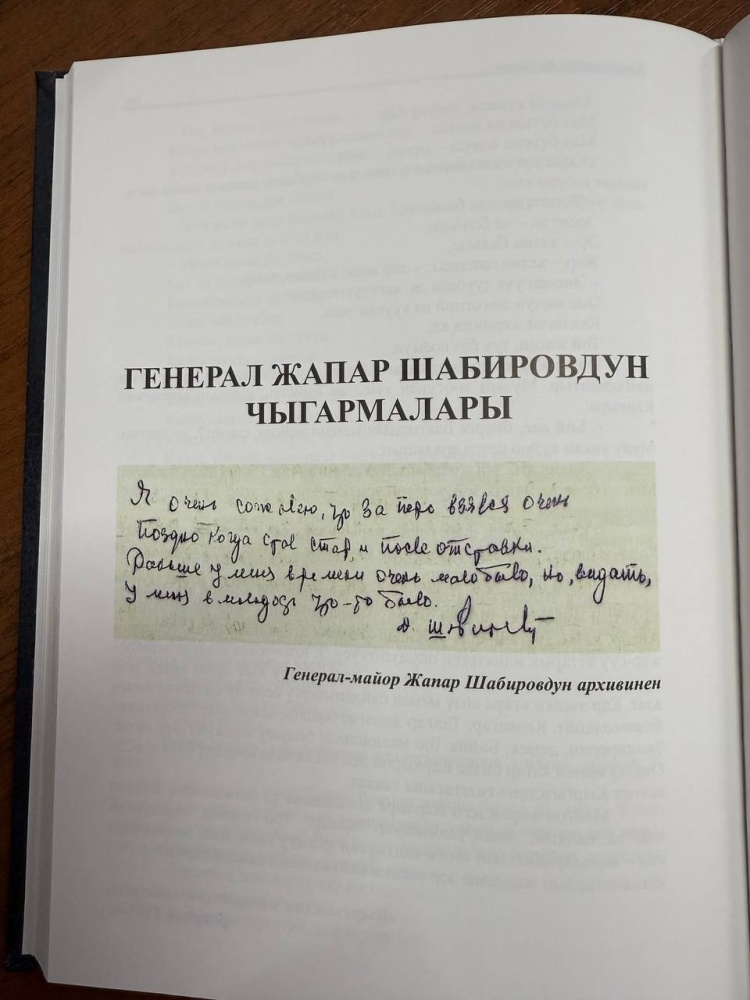 ГЕНЕРАЛ ЖАПАР ШАБИРОВДУН
ЧЫГАРМАЛАРЫ
Я очень сожалею, что за перо взялся очень
поздно когда стал стар, и после отставки.
Раньше у меня времени очень мало было, но, видать,
у меня в молодости что-то было.
Генерал-майор Жапар Шабировдун архивинен